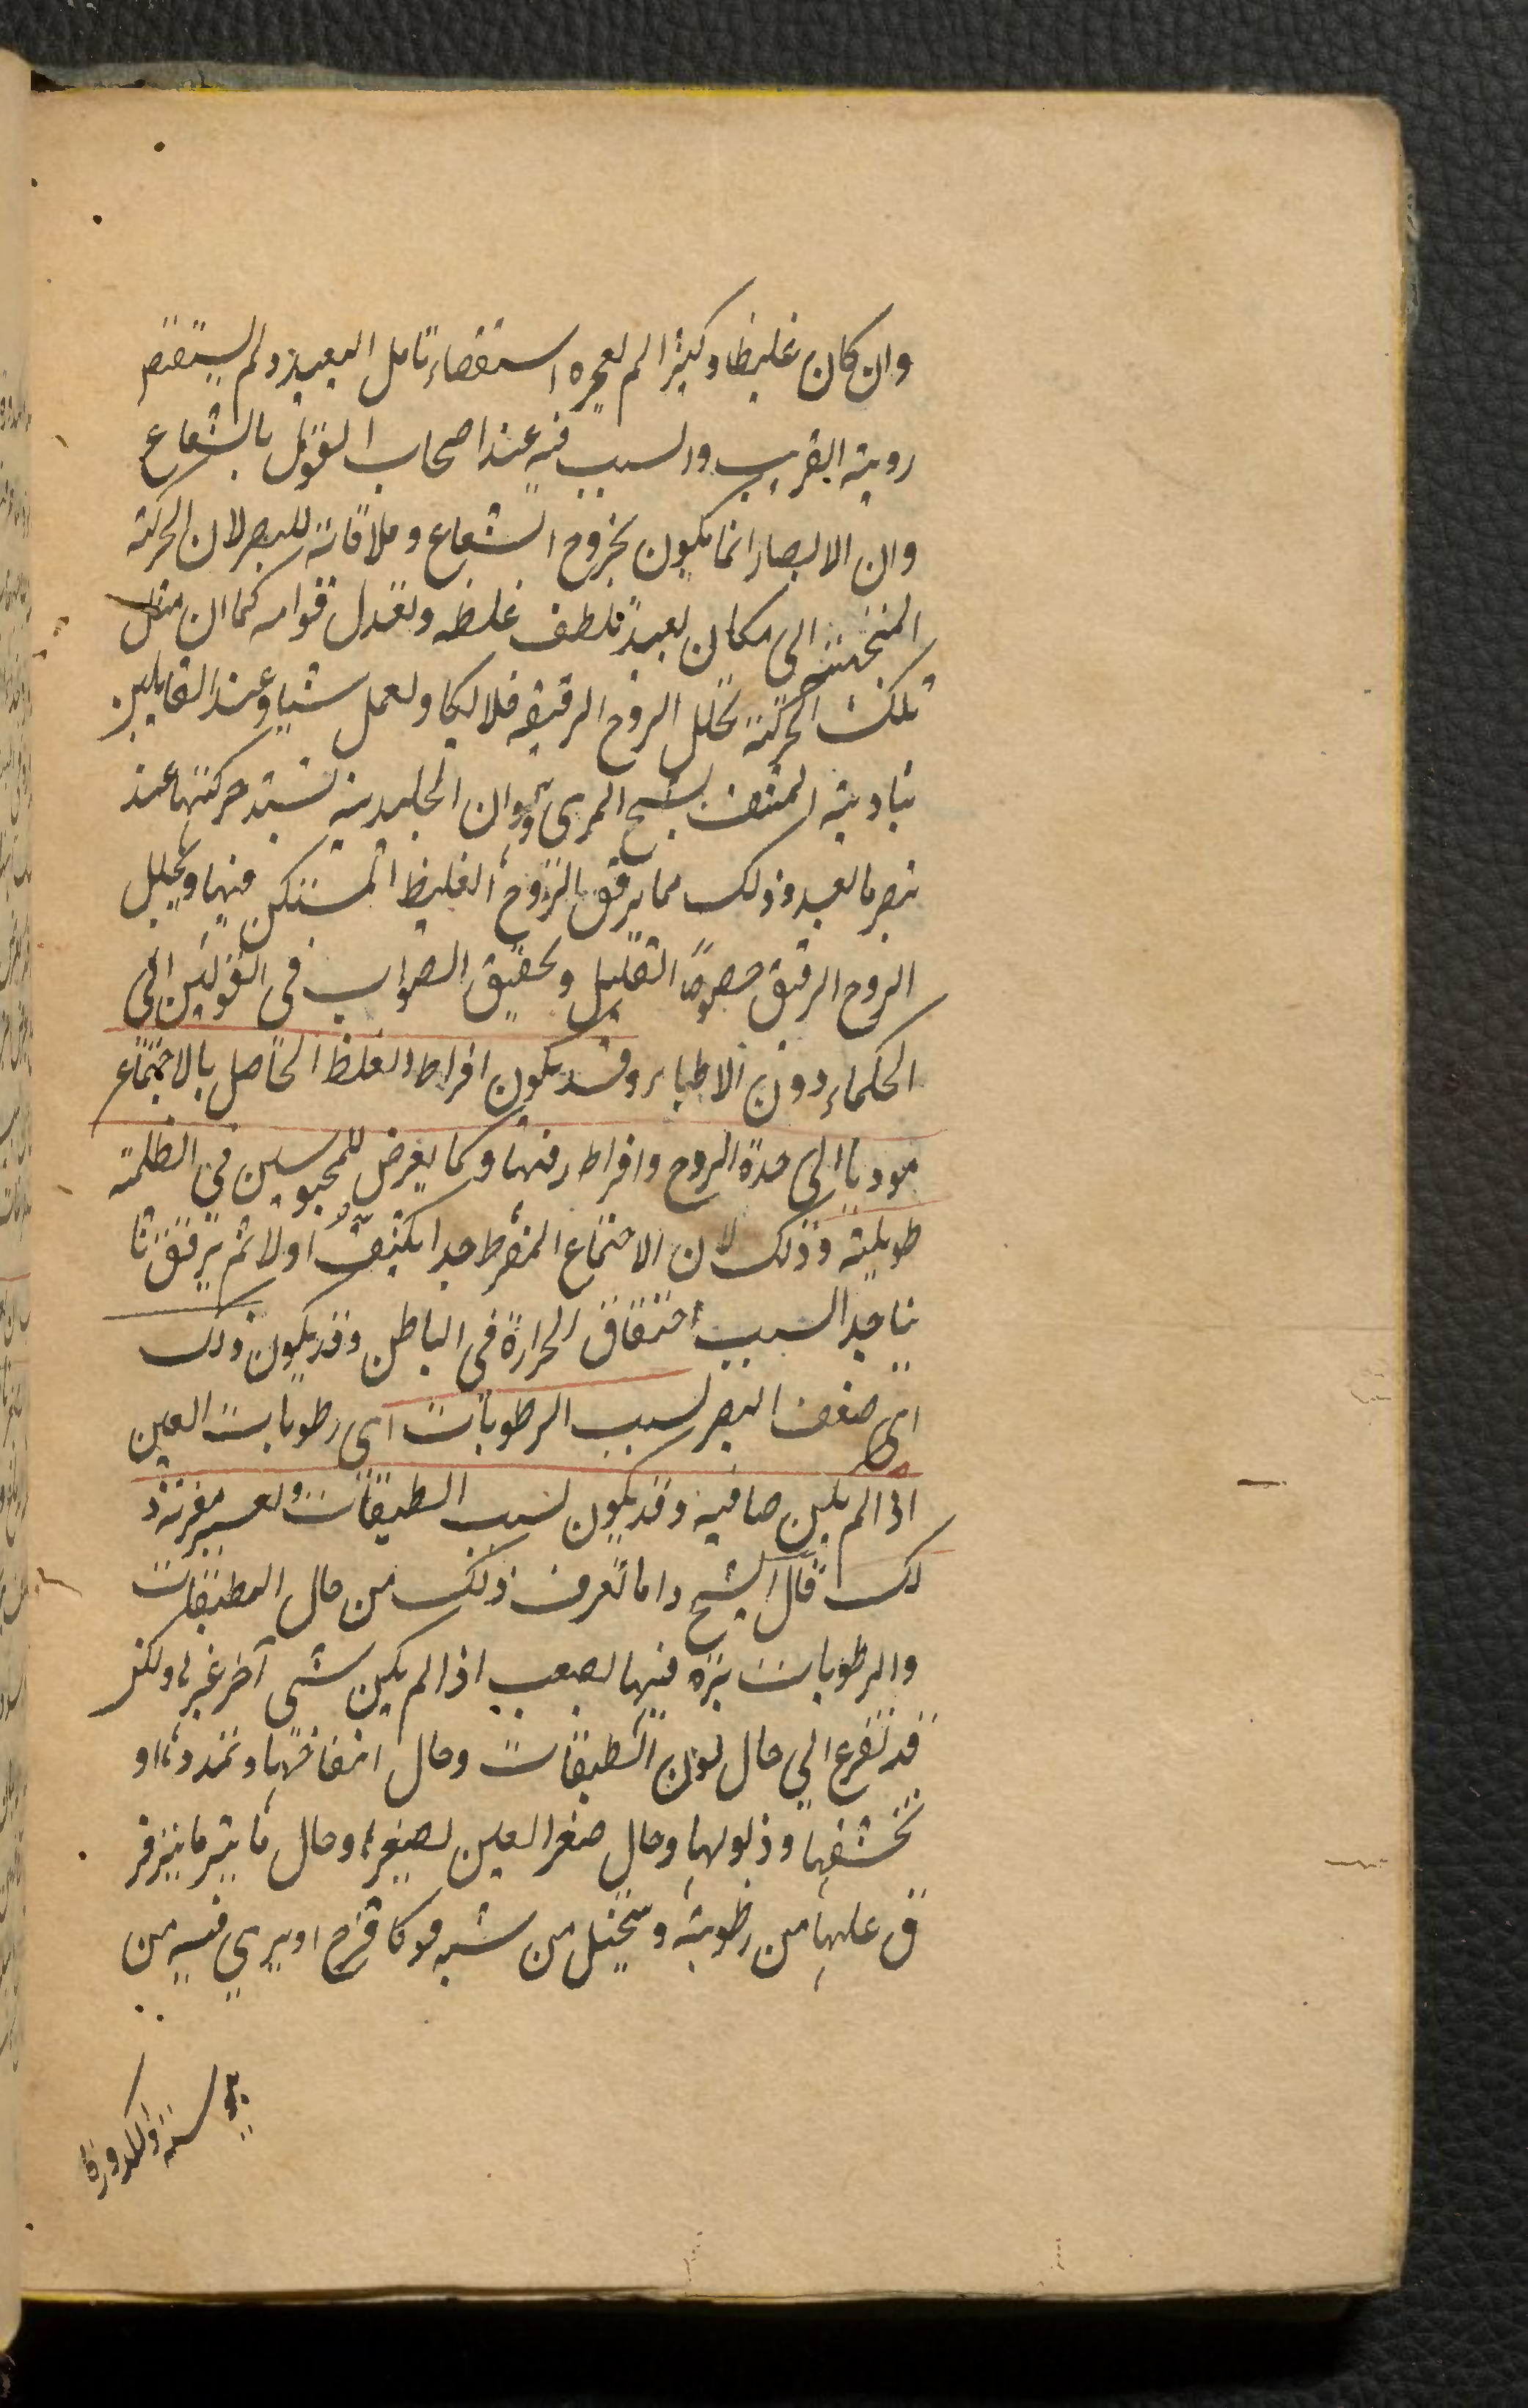 وان كان غليظا وكثيرا لم يعجزه استقصاء تامل البعيد ولم يستقص
روية القريب والسبب فيه عند اصحاب القول بالشعاع
وان الابصار انما يكون بخروج الشعاع وملاقاته للمبصر لان الحركة
المتجهة الى مكان بعيد تلطف غلظه وتعدل قوامه كما ان مثل
تلك الحركة تحلل الروح الرقيقة فلا يكاد يعمل شيا وعند القايلين
بتادية المشف شبح المرى وان الجليدية تشتد حركتها عند
تبصر ما بعد وذلك مما يرقق الروح الغليظ المستكن فيها ويحلل
الروح الرقيق خصوصا القليل وتحقيق الصواب في القولين الى
الحكماء دون الاطباء وقد يكون افراط الغلظ الحاصل بالاجتماع
موديا الى حدة الروح وافراط رقتها وكما يعرض للمحبوسين في الظلمة
طويلة وذلك لان الاجتماع المفرط جدا يكثف اولا ثم يرقق ثا
نيا جدا لسبب احتقان الحرارة في الباطن وقد يكون ذلك
اى ضعف البصر لسبب الرطوبات اى رطوبات العين
اذا لم يكن صافية وقد يكون لسبب الطبقات ولعسر معرفة ذ
لك قال الشيخ واما تعرف ذلك من حال الطبقات
والرطوبات نزه فيها لصعب اذا لم يكن شى آخر غيره ولكن
قد تفزع الى حال لون الطبقات وحال انتفاخها وتمددها او
تخشفها وذبولها وحال صغر العين لصغرها وحال ما يترقر
ق عليها من رطوبة ويتخيل من شبه قوس قزح او يرى فيه من
يبوسة والكدورة